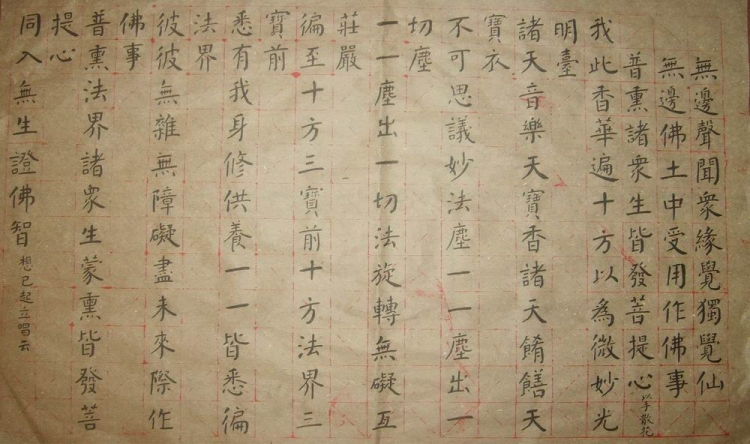 無邊聲聞衆緣覺獨覺仙
無邊佛土中受用作佛事
普熏諸衆生皆發菩提心以手散花
我此香華遍十方以為微妙光
明臺
諸天音樂天寶香諸天餚饍天
寶衣
不可思議妙法塵一一塵出一
切塵
一一塵出一切法旋轉無礙互
莊嚴
徧至十方三寶前十方法界三
寶前
悉有我身修供養一一皆悉徧
法界
彼彼無雜無障礙盡未來際作
佛事
普熏法界諸衆生蒙熏皆發菩
提心
同入無生證佛智想已起立唱云